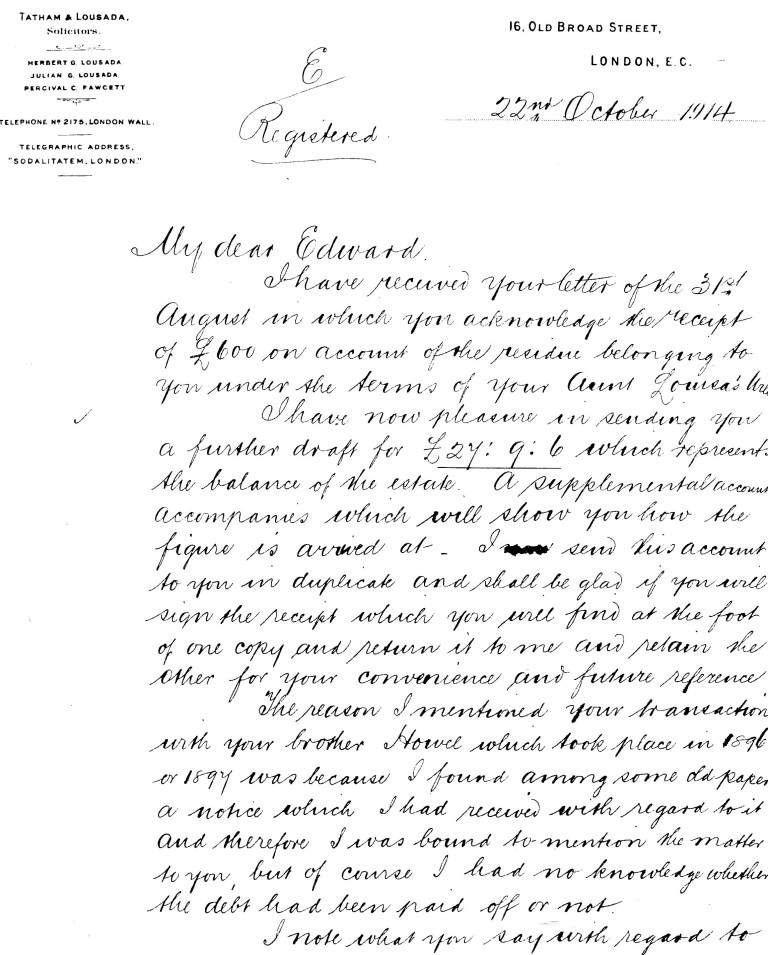 TATHAM & LOUSADA,
Solicitors.
HERBERT G. LOUSADA
JULIAN G. LOUSADA
PERCIVAL C. FAWCETT
TELEPHONE Nº 2175, LONDON WALL.
TELEGRAPHIC ADDRESS,
"SODALITATEM, LONDON."
16, OLD BROAD STREET,
LONDON, E.C.
22nd October 1914
E
Registered
My dear Edward.
I have received your letter of the 31st
August in which you acknowledge the receipt
of £600 on account of the residue belonging to
you under the terms of your Aunt Louisa's
I have now pleasure in sending you
a further draft for £27: 9: 6 which represents
the balance of the estate. A supplemental account
accompanies which will show you how the
figure is arrived at - I send this account
to you in duplicate and shall be glad if you will
sign the receipt which you will find at the foot
of one copy and return it to me and retain the
other for your convenience and future reference
The reason I mentioned your transaction
with your brother Howel which took place in 1896
or 1897 was because I found among some old paper
a notice which I had received with regard to it
and therefore I was bound to mention the matter
to you, but of course I had no knowledge whether
the debt had been paid off or not.
I note what you say with regard to